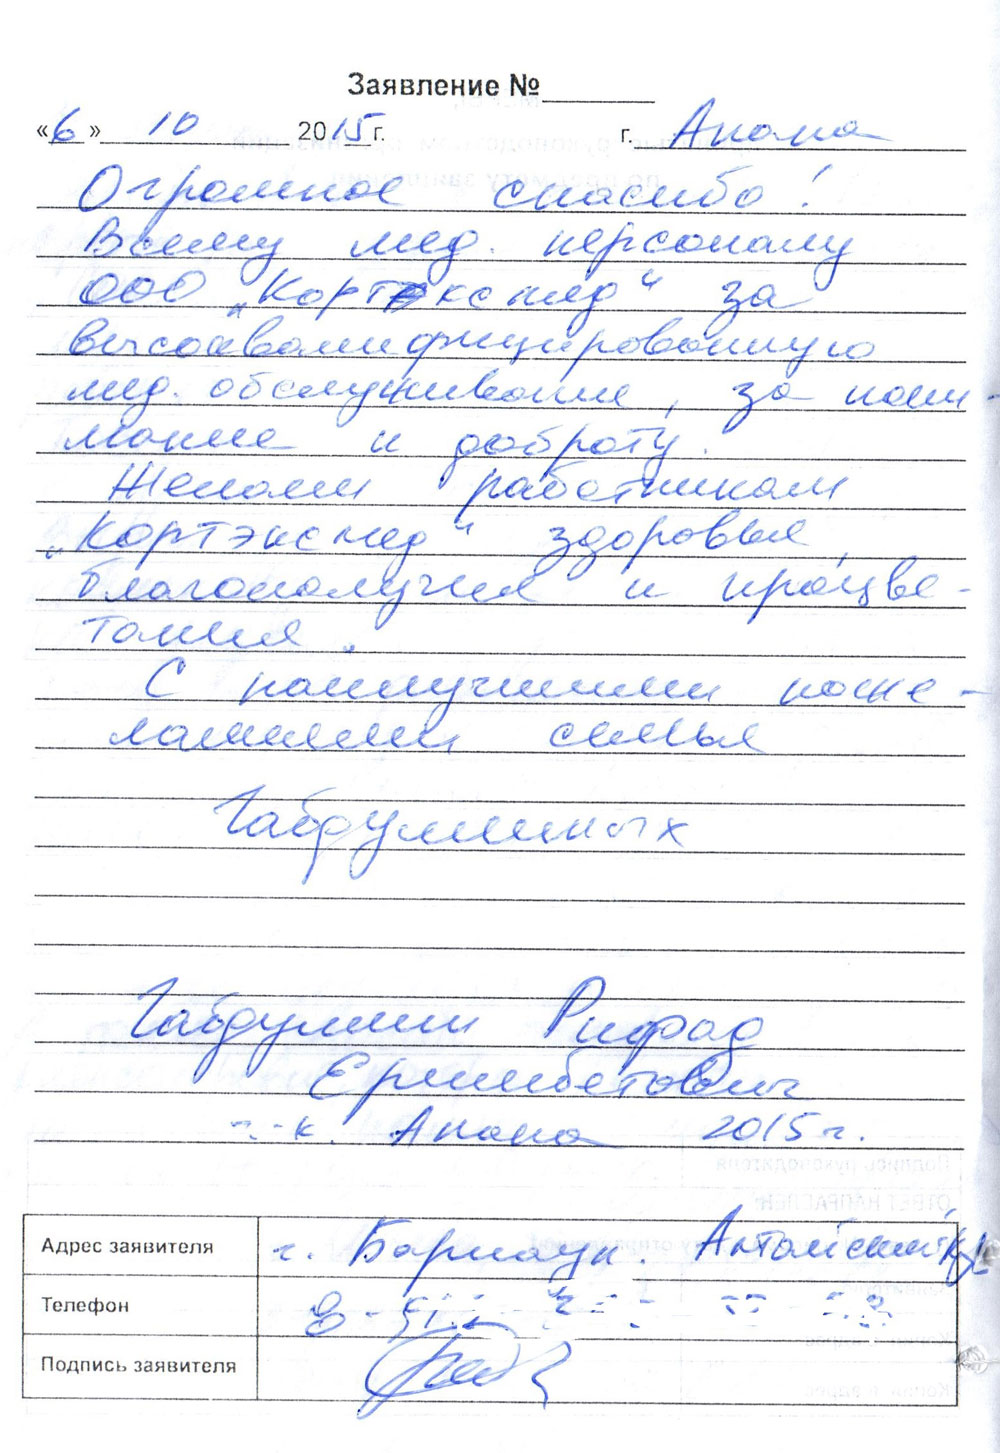 Заявление №
«6» 10 2015 г. г. Анапа
Огромное спасибо!
Всему мед. персоналу
ООО „Кортэксмед“ за
высоквалифицированную
мед. обслуживание, за пони-
мание и доброту.
Желаем работникам
„Кортэксмед“ здоровья,
благополучия и процве-
тания.
С наилучшими поже-
ланиями семья
Габдулиных
Габдулин Рифад
Еримбетович
г-к. Анапа 2015 г.
Адрес заявителя г. Барнаул. Алтайский
Телефон 8-
Подпись заявителя